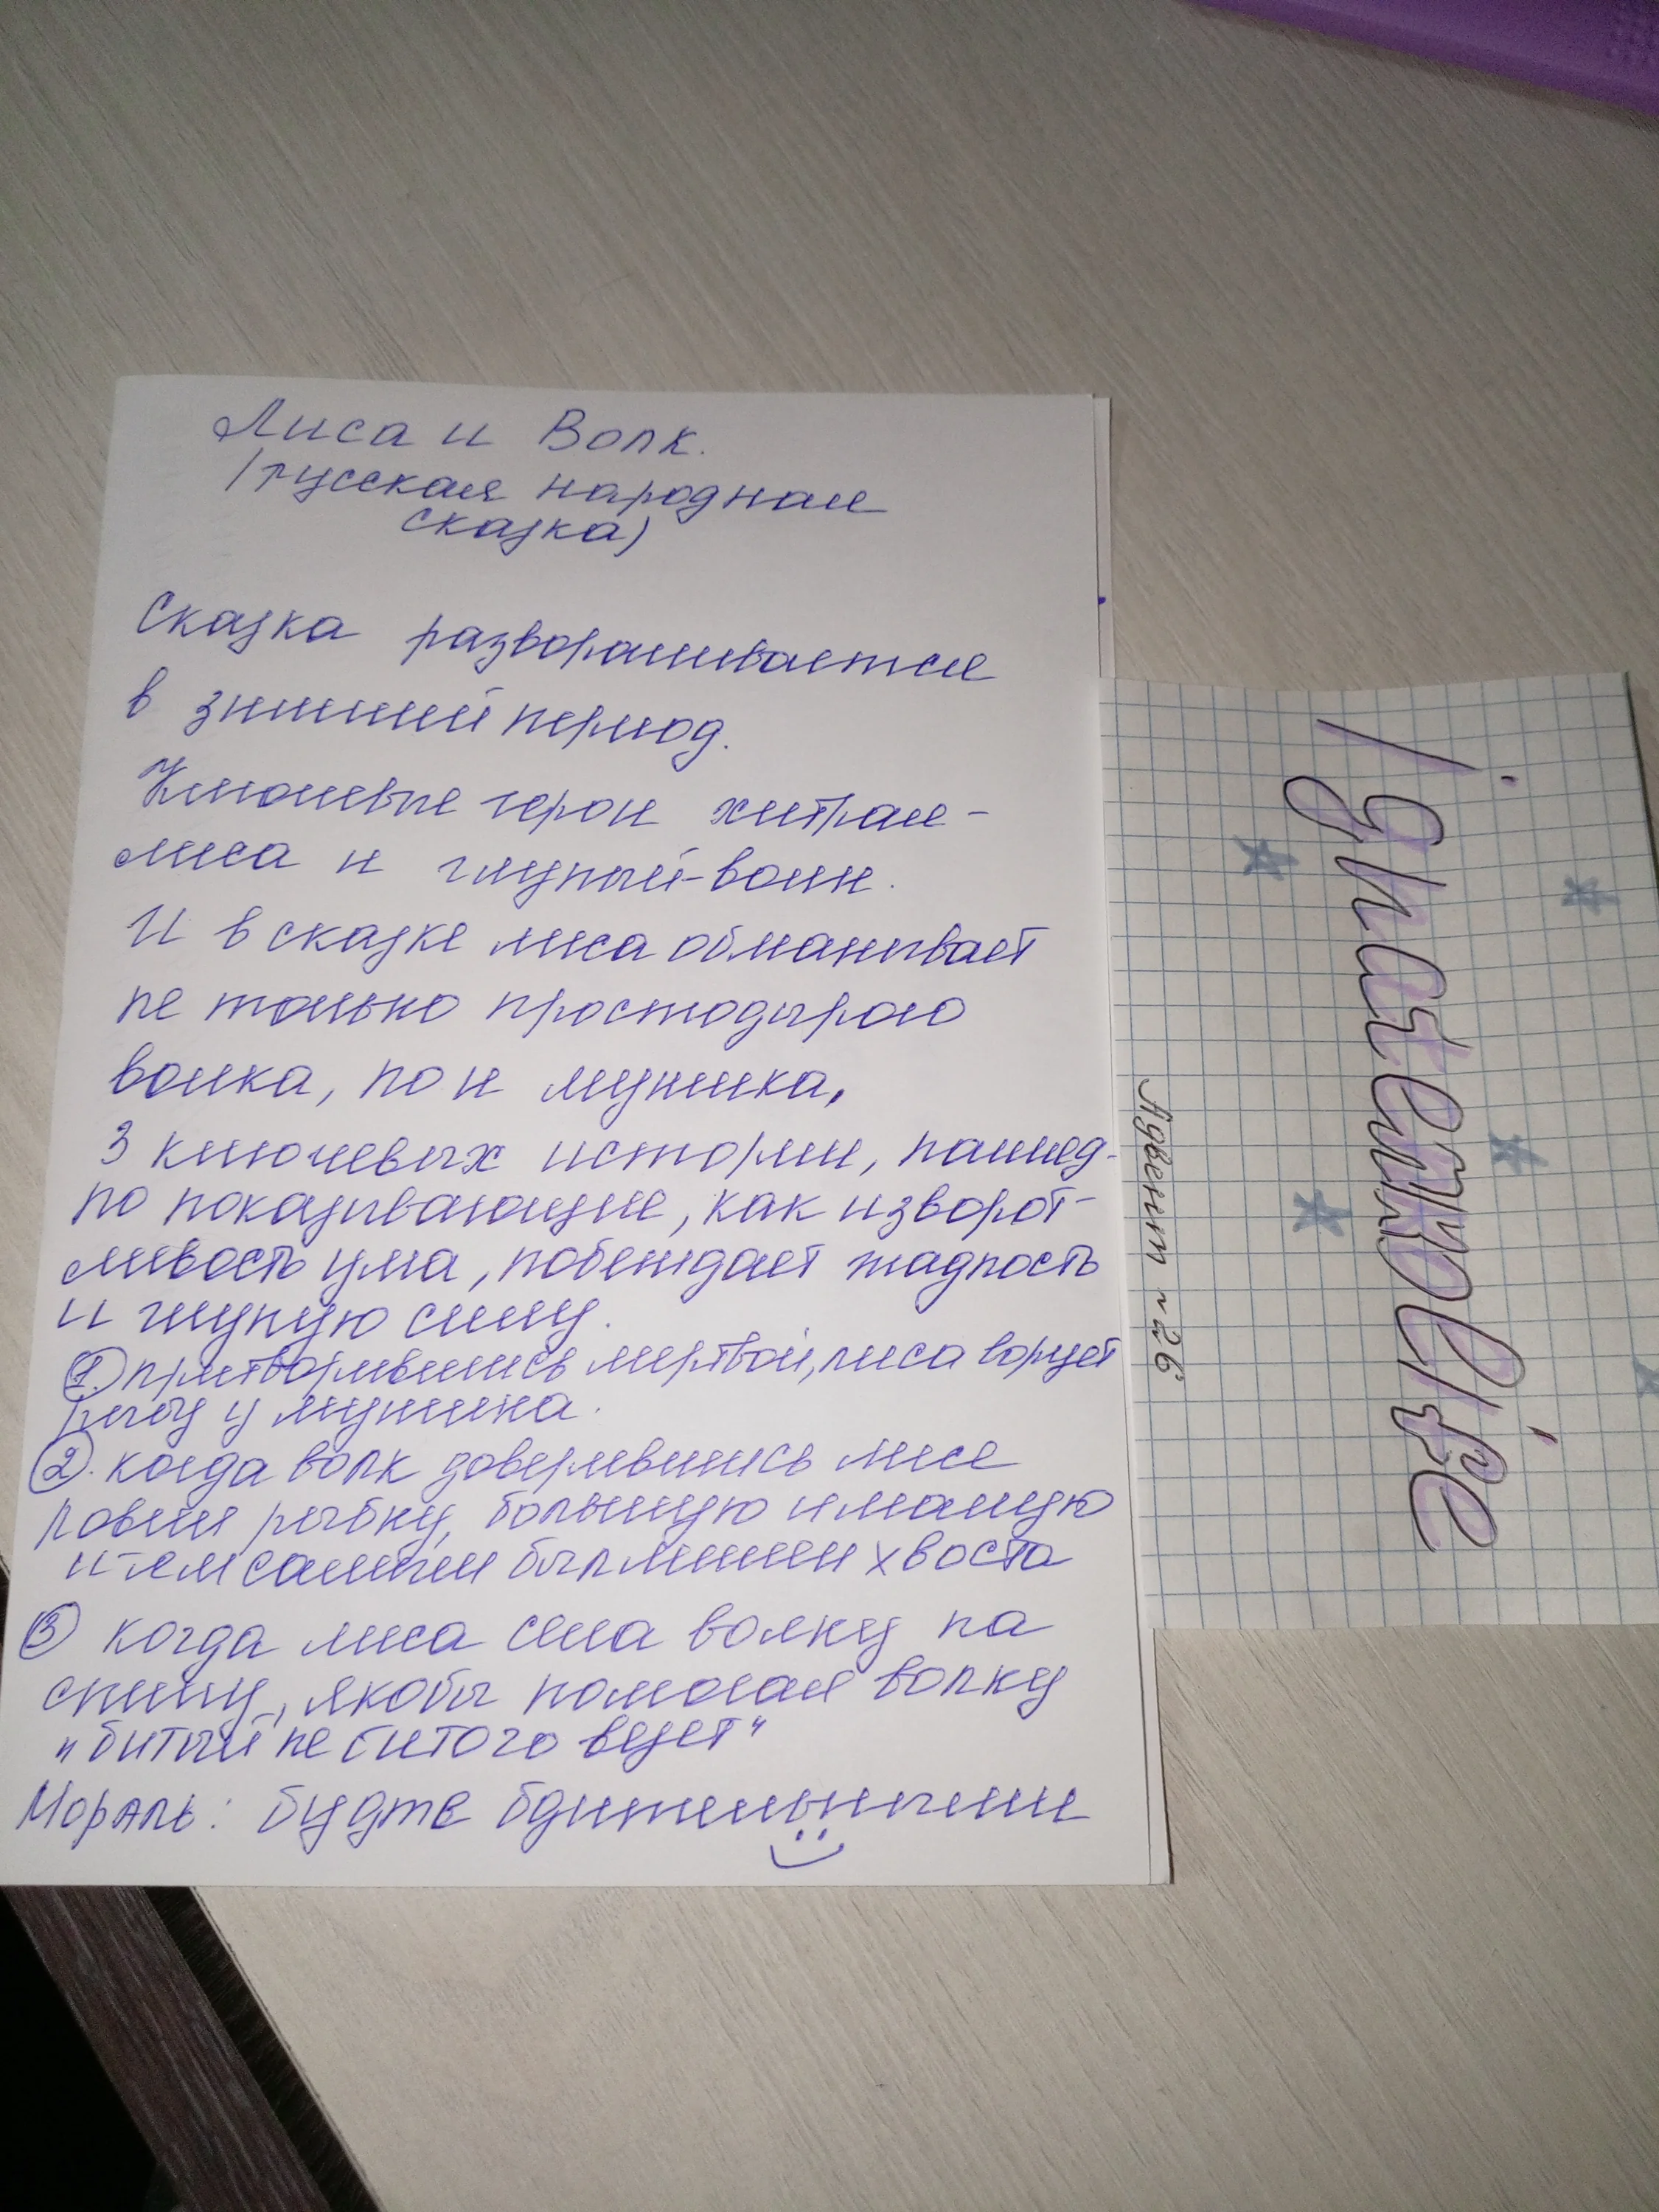 Лиса и Волк.
(русская народная
сказка)
Сказка разворашивается
в зимний период.
Ключевые герои хитрая-
лиса и глупый-волк.
И в сказке лиса обманывает
не только простодырого
волка, но и мужика.
3 ключевых истории, нашляд-
но показивающие, как изворот-
ливость ума, побеждает жадность
и глупую силу.
1. притворившись мертвой, лиса ворует
рыбу у мужика.
2. когда волк доверившись лисе
ловил рыбку, большую и малую
и тем самым был лишен хвоста
3 когда лиса села волку на
спину, якобы помогая волку
"битый не битого везет"
Мораль: будте бдительными
Адвент ~26